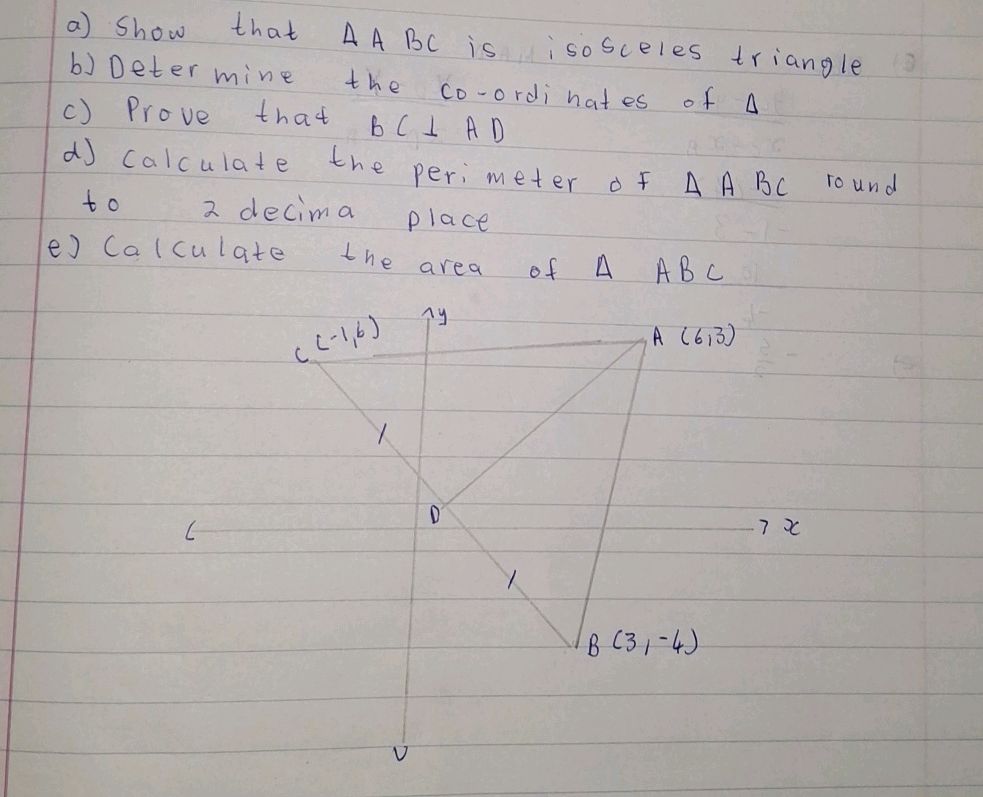 a) Show that Δ A BC is isosceles triangle
b) Determine the co-ordinates of Δ
c) Prove that BC ⊥ AD
d) calculate the perimeter of Δ A BC round
to 2 decima place
e) Calculate the area of Δ ABC
y
C (-1,6)
A (6,3)
D
x
B (3,-4)